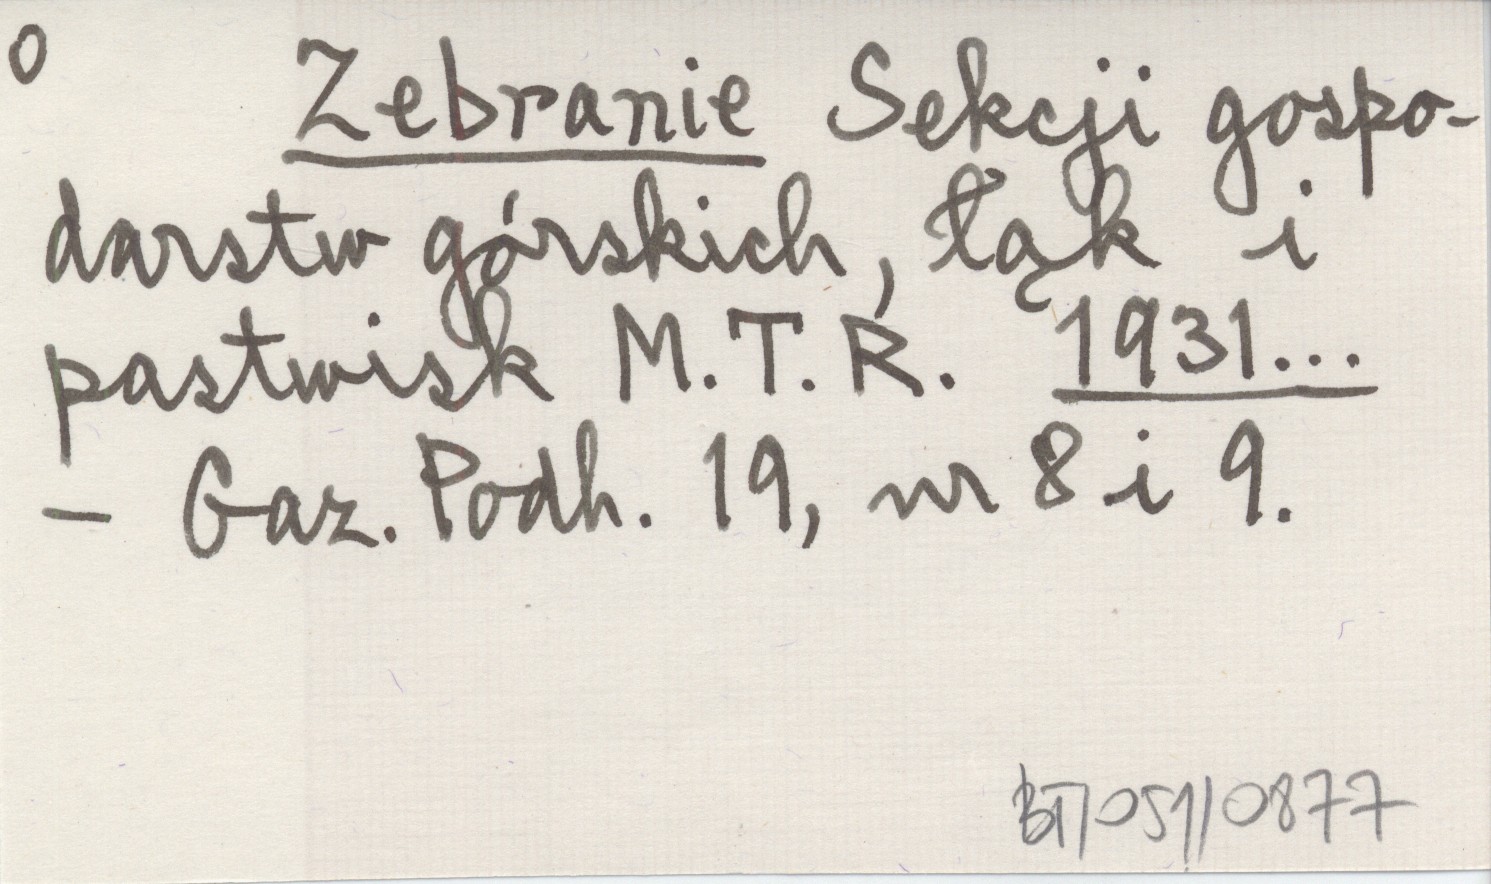 0 Zebranie Sekcji gospo-
darstw górskich, łąk i
pastwisk M.T.R. 1931...
- Gaz. Podh. 19, nr 8 i 9.
BT/051/0877